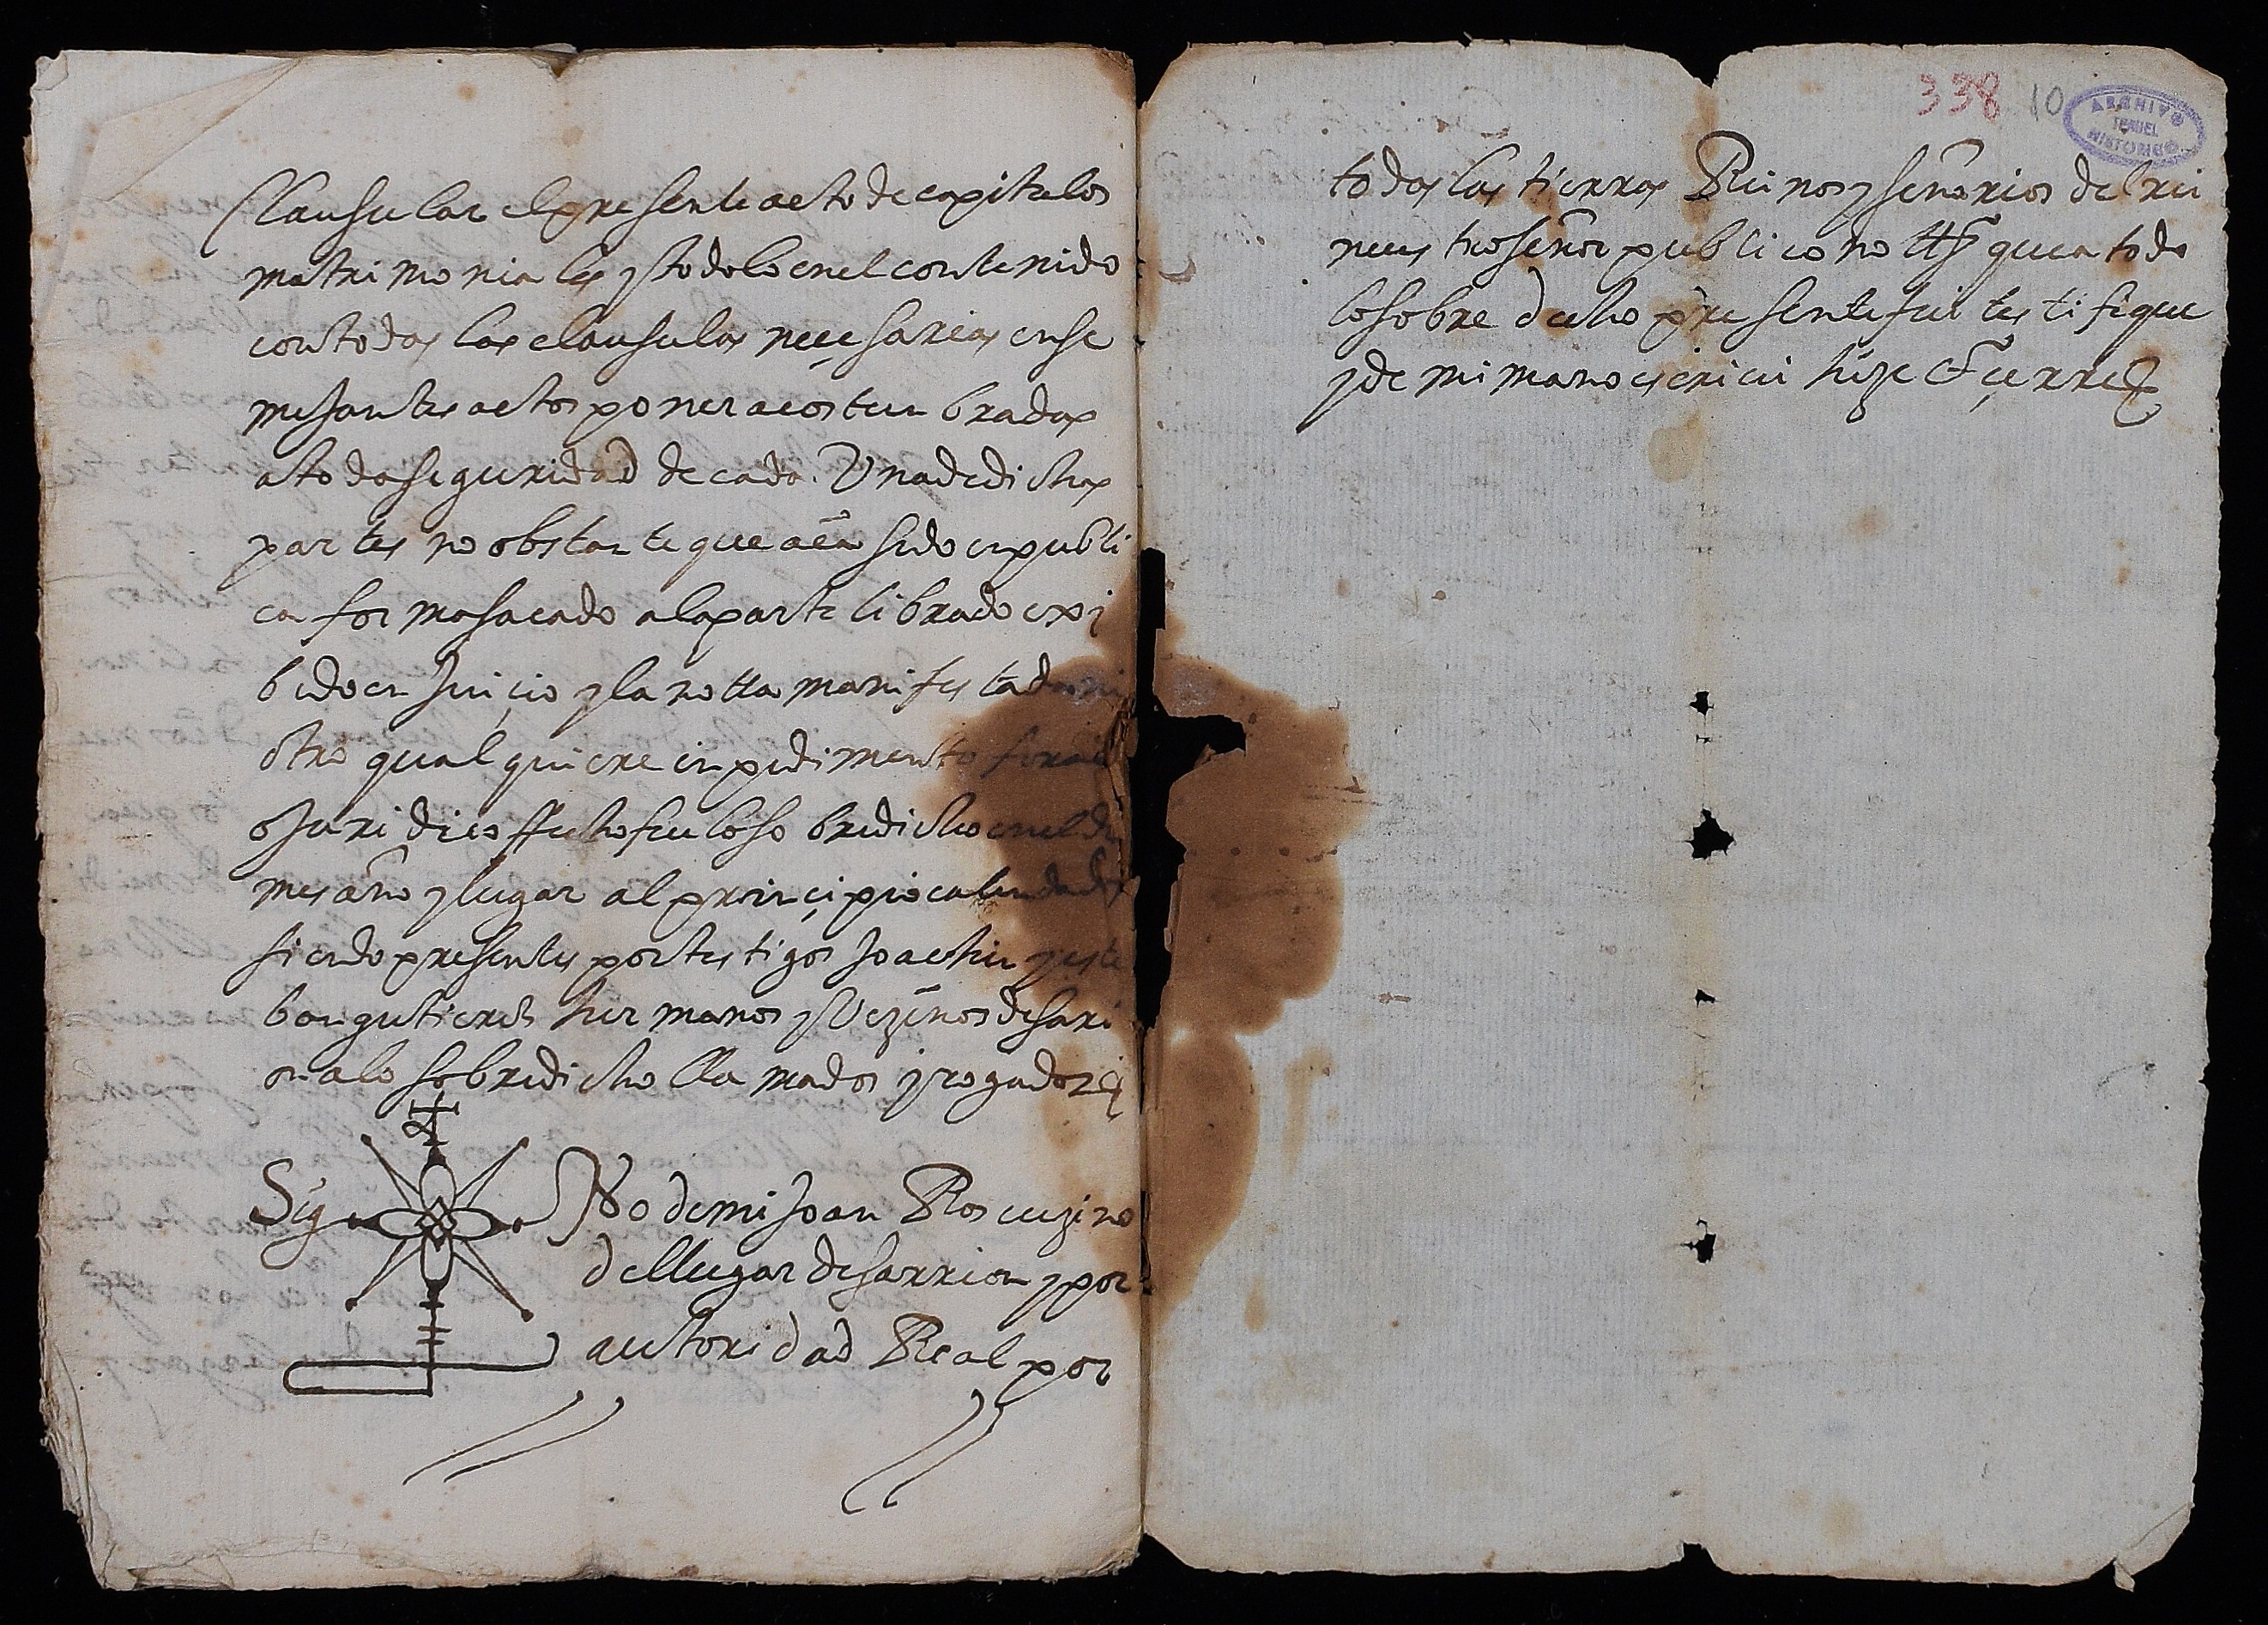 Clausular el presente acto de capitulos
matrimoniales y todo lo en el contenido
con todas las clausulas neçesarias en se
mejantes actos poner acostunbradas
a toda seguridad de cada Una de dichas
partes no obstante que aēa sido en publi
ca forma sacado a la parte librado exi
bido en Juiçio y la notta manifestada ni
otro qualquiere inpedimento foral
o Juridico ffecho fue lo sobredicho en el di
mes año y lugar al prinçipio calendado
siendo presentes por testigos Joachin y este
ban gutierez hermanos y Vezinos de sari
on a lo sobredicho llamados y rogados
Sig No de mi Joan Ros vezino
del lugar de sarrion y por
autoridad Real por
338 10
ARCHIVO
TERUEL
HISTORICO
todas las tierras Reinos y señorios del rei
nuestro señor publico nottº que a todo
lo sobre dicho presente fui testifique
y de mi mano escriui hize et çerre